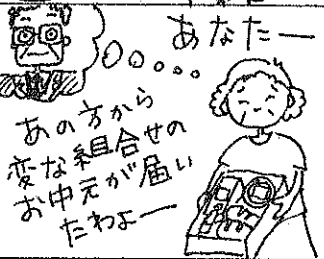 あなたー
あの方から
変な組合せの
お中元が届い
たわよー